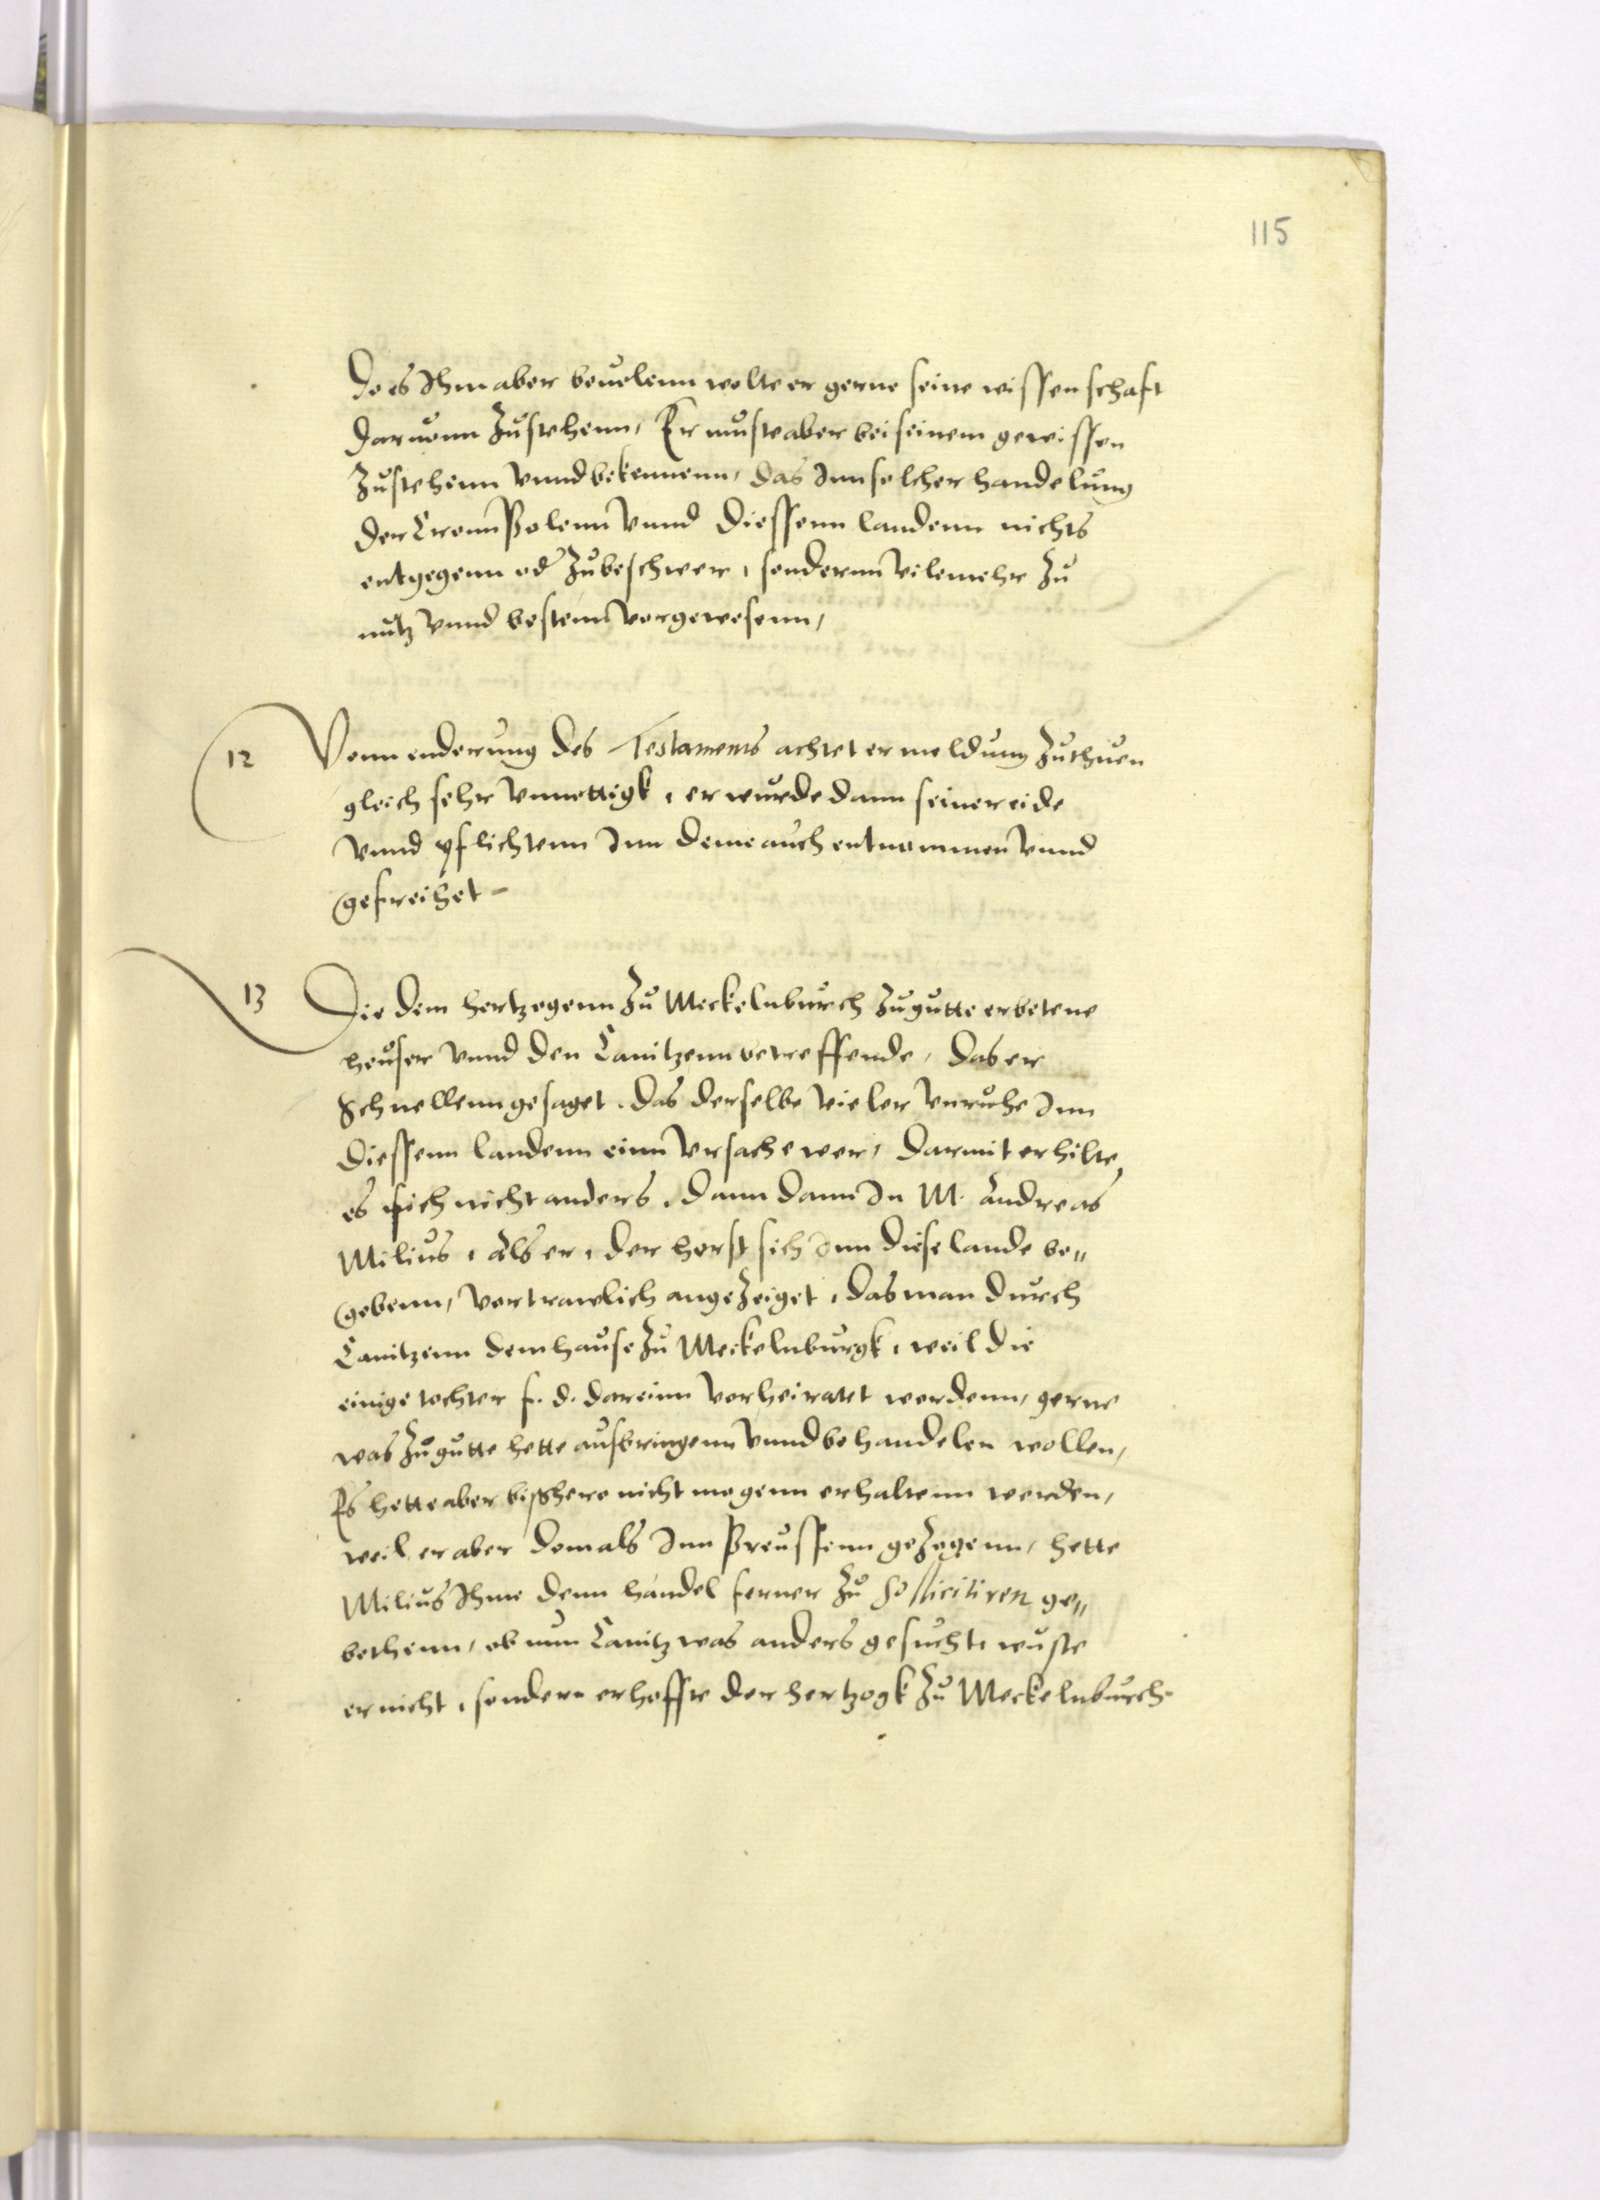 115
Do es Ihm aber beuolenn wolte er gerne seine wissenschaft
daruonn zustehenn, Er muste aber bei seinem gewissen
zustehenn vnnd bekennenn, das Inn solcher handelung
der Cronn Polenn vnnd diessenn landenn nichts
entgegenn od zubeschwer, sondernn vilemehr zu
nutz vnnd bestenn vorgewesenn,
12 Vonn enderung des Testaments achtet er meldung zuthuen
gleich sehr vnnottigk, er wurde dann seiner eide
vnnd pflichtenn Inn deme auch entnommen vnnd
gefreihet -
13 Die dem hertzogenn zu Meckelnburch zugutte erbetene
heuser vnnd den Canitzenn betreffende, das er
Schnellenn gesaget, das derselbe vieler vnruhe Inn
diessenn landenn einn vrsache wer, darmit erhilte
es sich nicht anders, dann dann In M. Andreas
Milius, als er, der horst sich Inn diese lande be„
gebenn, vertrawlich angezeiget, das man durch
Canitzenn dem hause zu Meckelnburgk, weil die
einige tochter f. d. dareinn vorheiratet wordenn, gerne
was zugutte hette ausbringenn vnnd behandelen wollen,
Es hette aber bisshero nicht mogenn erhaltenn werden,
weil er aber domals Inn Preussenn gezogenn, hette
Milius Ihme denn handel ferner zu sollicitiren ge„
bethenn, ob nun Canitz was anders gesucht, wuste
er nicht, sondern erhoffte der hertzogk zu Meckelnburch